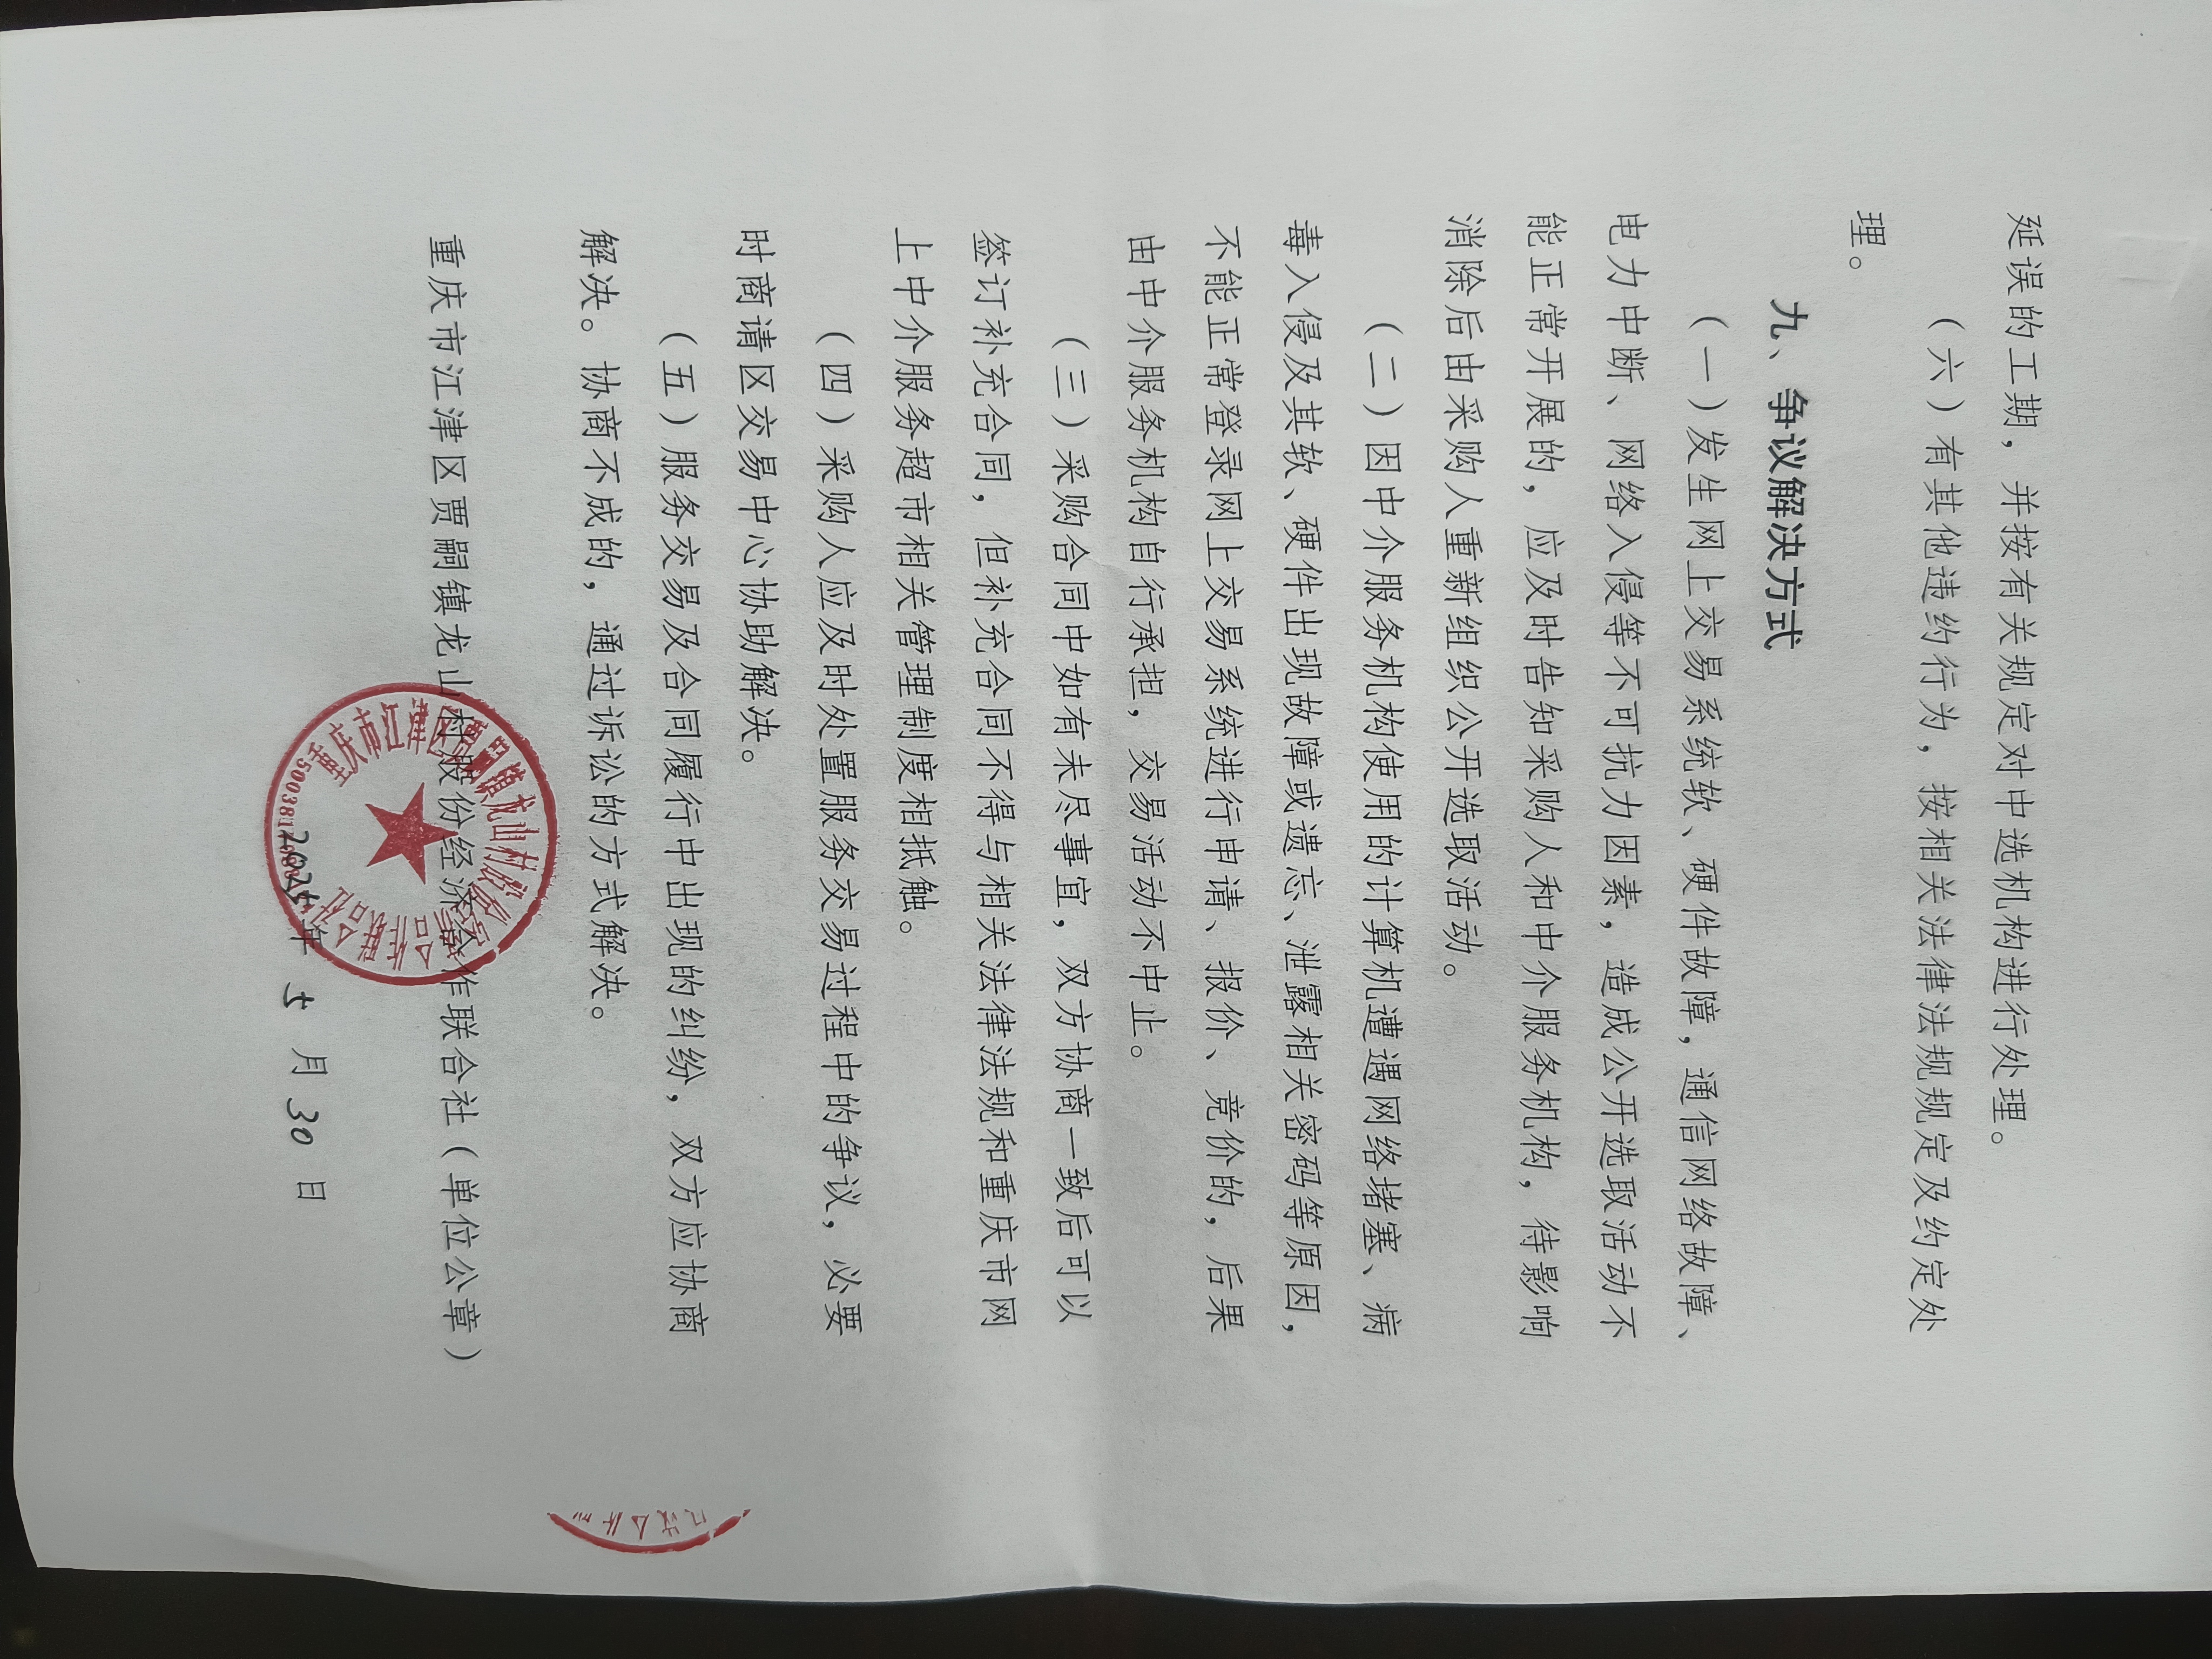 延误的工期，并按有关规定对中选机构进行处理。
（六）有其他违约行为，按相关法律法规规定及约定处
理。
九、争议解决方式
（一）发生网上交易系统软、硬件故障，通信网络故障、
电力中断、网络入侵等不可抗力因素，造成公开选取活动不
能正常开展的，应及时告知采购人和中介服务机构，待影响
消除后由采购人重新组织公开选取活动。
（二）因中介服务机构使用的计算机遭遇网络堵塞、病
毒入侵及其软、硬件出现故障或遗忘、泄露相关密码等原因，
不能正常登录网上交易系统进行申请、报价、竞价的，后果
由中介服务机构自行承担，交易活动不中止。
（三）采购合同中如有未尽事宜，双方协商一致后可以
签订补充合同，但补充合同不得与相关法律法规和重庆市网
上中介服务超市相关管理制度相抵触。
（四）采购人应及时处置服务交易过程中的争议，必要
时商请区交易中心协助解决。
（五）服务交易及合同履行中出现的纠纷，双方应协商
解决。协商不成的，通过诉讼的方式解决。
重庆市江津区贾嗣镇龙山村股份经济合作联合社（单位公章）
2025年 5 月 30 日
重庆市江津区贾嗣镇龙山村股份经济合作联合社